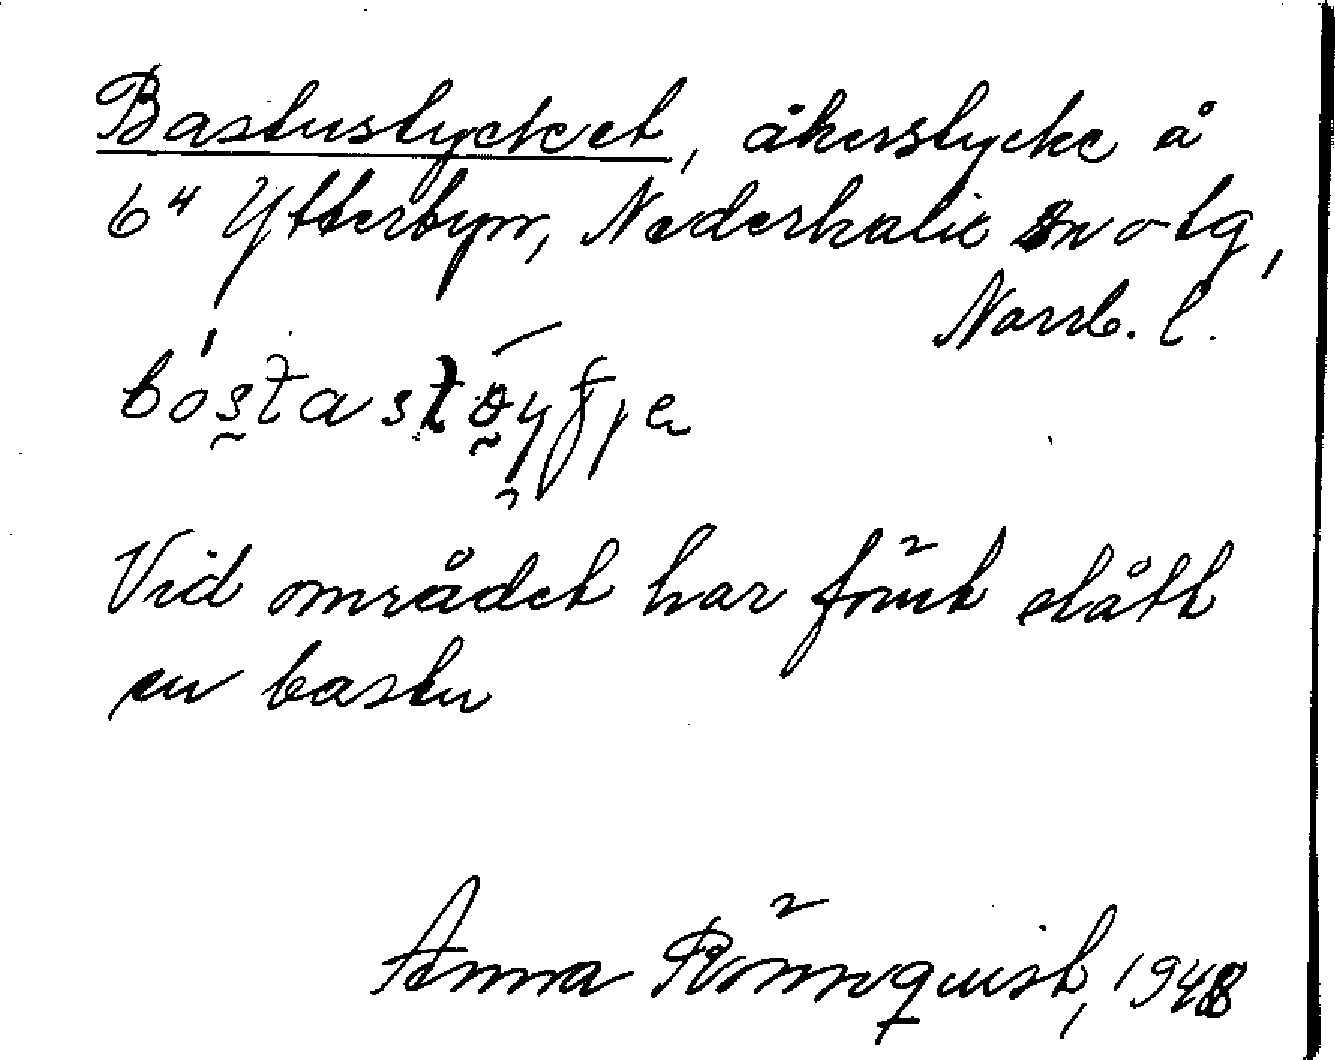 Bastustycket, åkerstycke å
6⁴ Ytterbyn, Nederkalix sn o tg,
Norrb. l.
Vid området har förut stått
en bastu
Anna Rönnquist, 1948